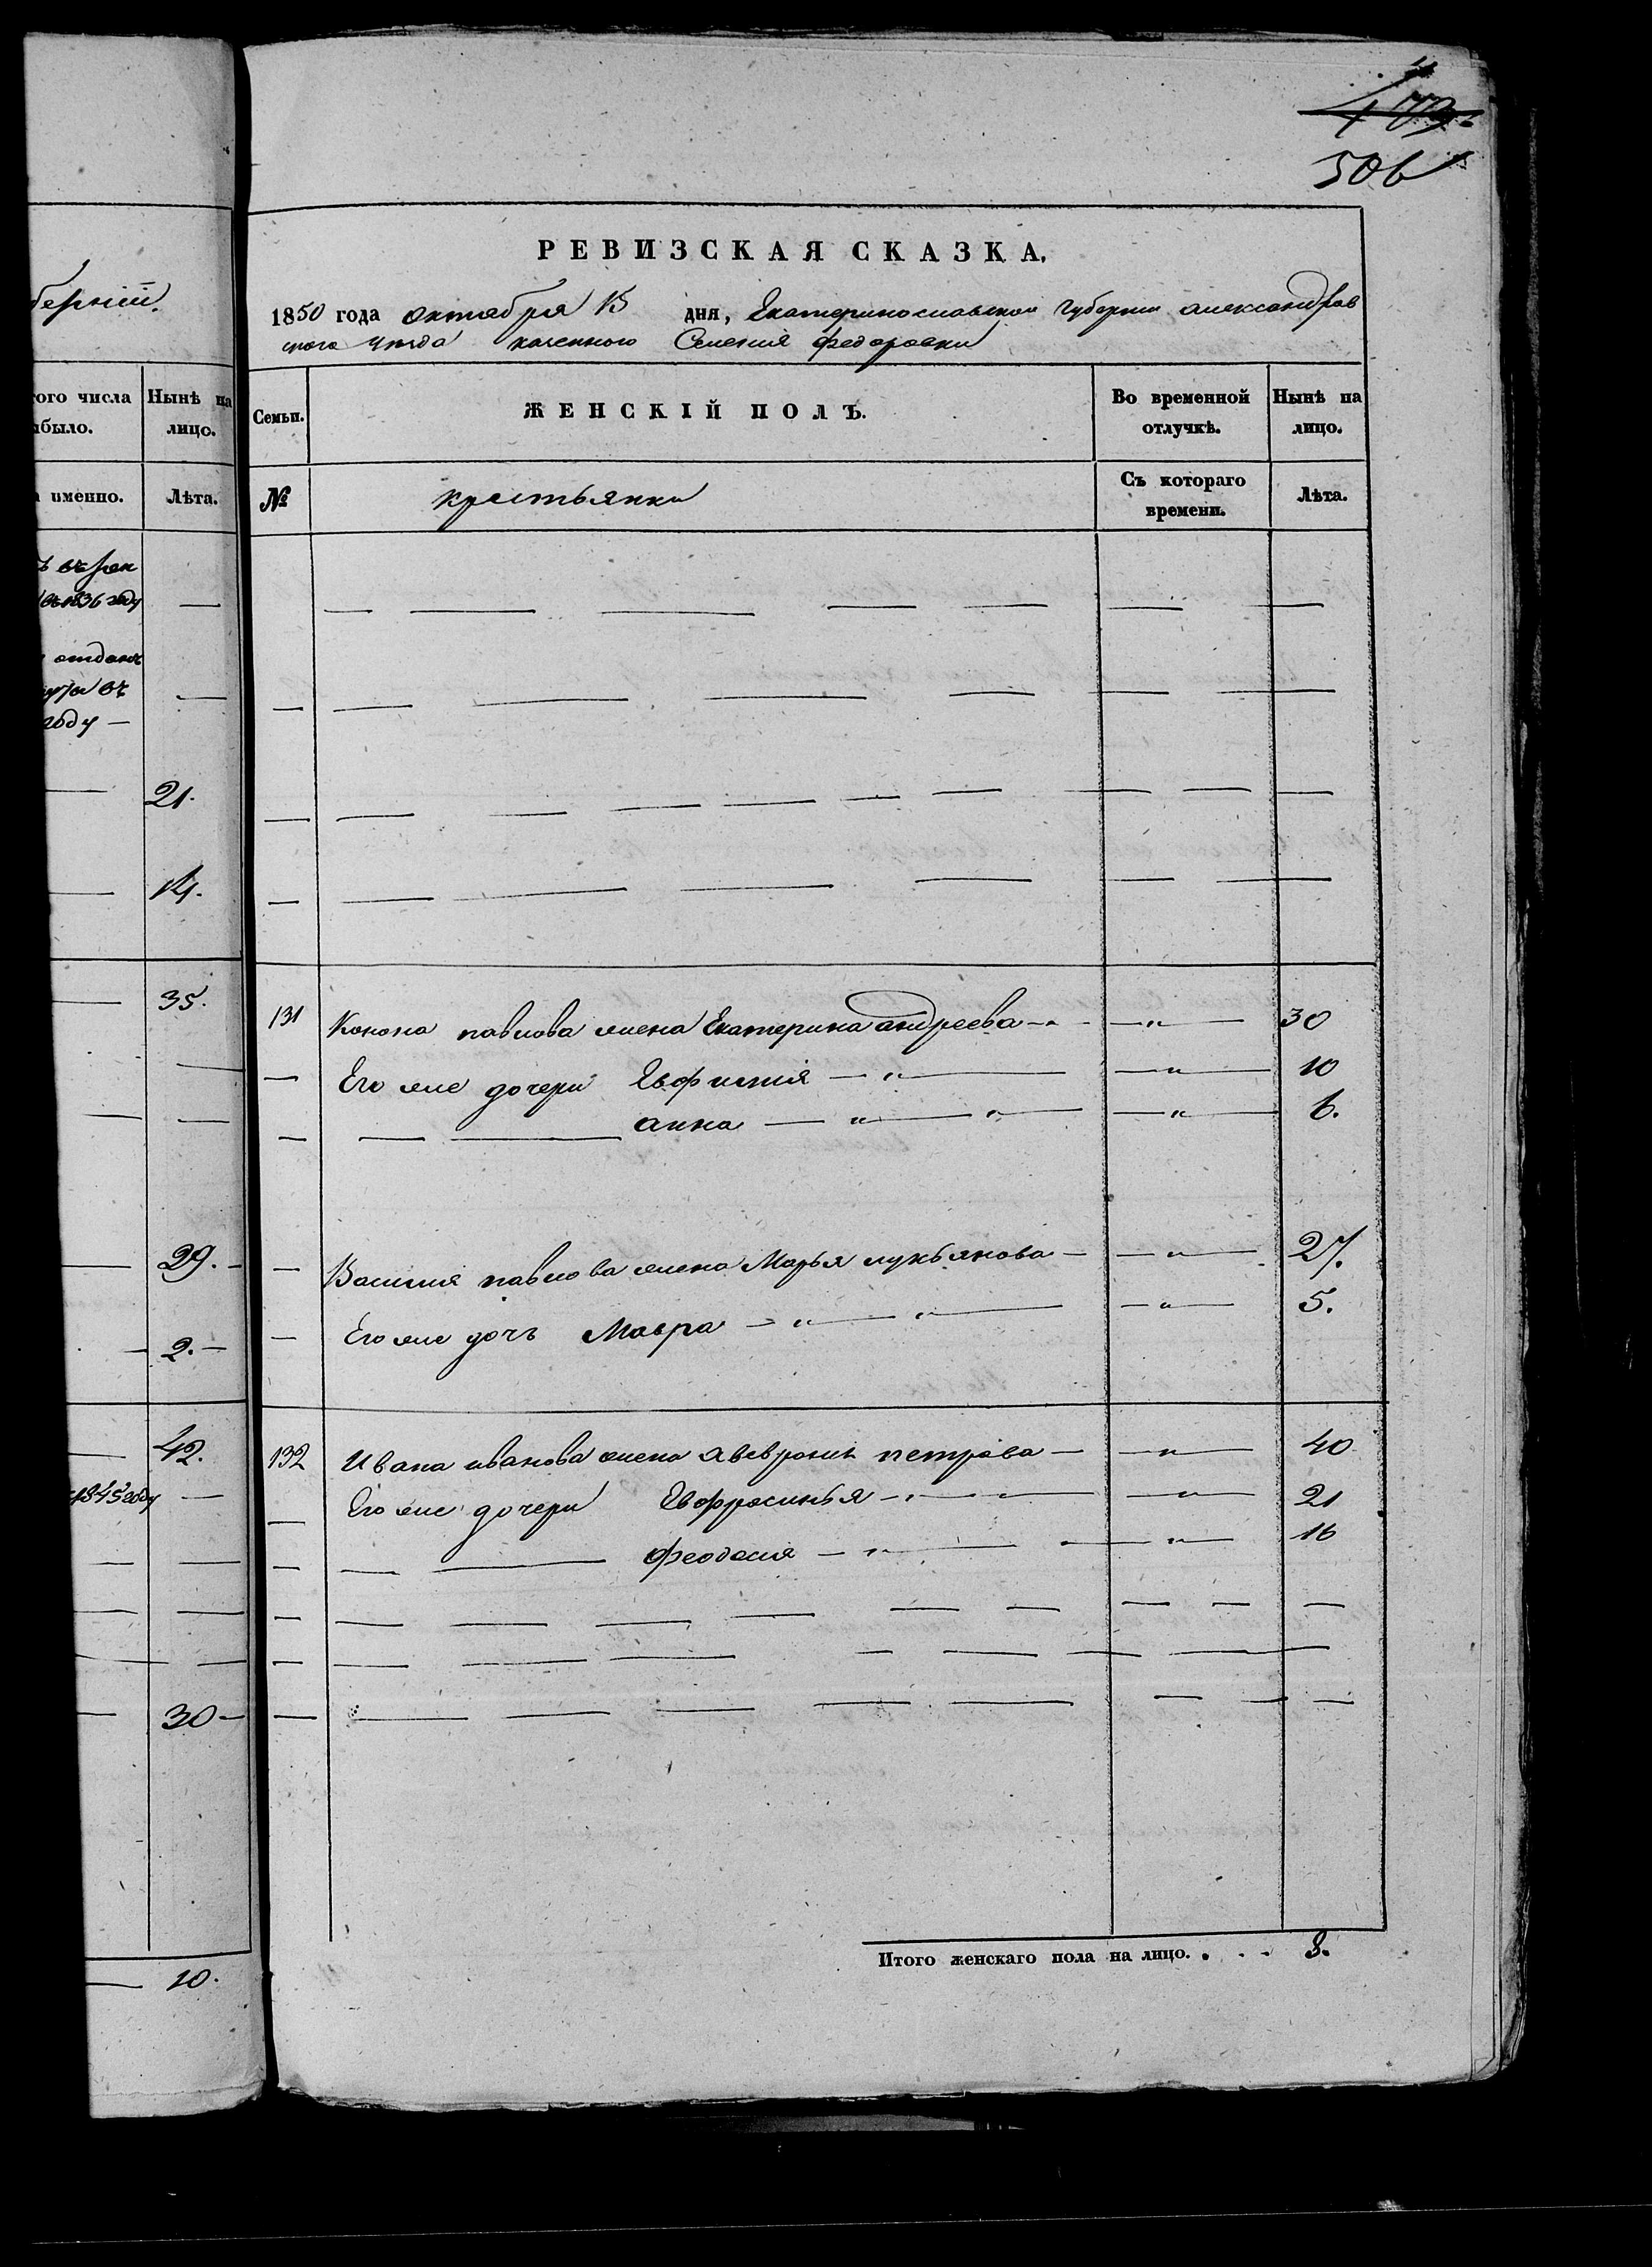 479
506
берніи.
РЕВИЗСКАЯ СКАЗКА.
1850 года октября 15 дня, Екатеринославской губерніи александров
ского уезда казенного Селенія федоровки
того числа
было.
Нынѣ на
лицо.
Семьи.
ЖЕНСКІЙ ПОЛЪ.
Во временной
отлучкѣ.
Нынѣ на
лицо.
именно.
Лѣта.
№
крестьянки
Съ котораго
времени.
Лѣта.
1836 году
отданъ
въ
году —
21.
14.
35.
131 Конона павлова жена Екатерина андреева — " — 30
— Его же дочери Евфимія — " — — " — 10
— — — анна — " — " — — " — 6.
29. —
— Василія павлова жена Марья лукьянова — — " — 27.
2. —
— Его же дочь Мавра — " — " — — " — 5.
42.
132 Ивана иванова жена Авевронія петрова — — " — 40
1845 году —
— Его же дочери Евфросинья — " — — " — 21
— — — феодосия — " — — " — 16
30 —
Итого женскаго пола на лицо. . . . 8.
10.